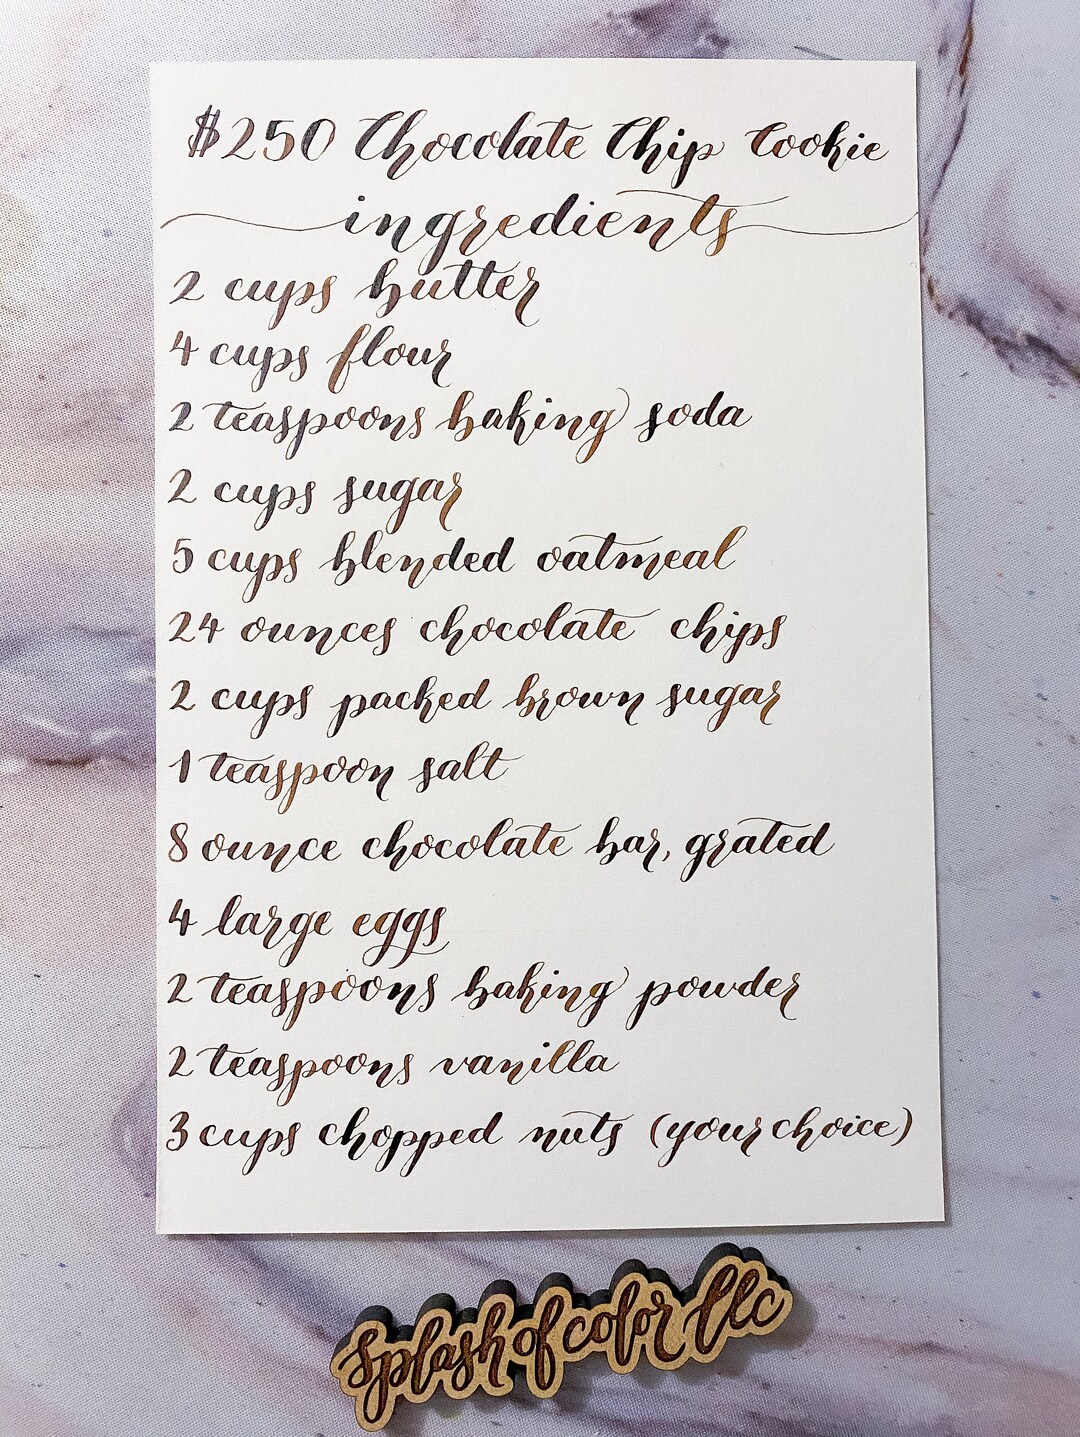 $250 Chocolate Chip Cookie
ingredients
2 cups butter
4 cups flour
2 teaspoons baking soda
2 cups sugar
5 cups blended oatmeal
24 ounces chocolate chips
2 cups packed brown sugar
1 teaspoon salt
8 ounce chocolate bar, grated
4 large eggs
2 teaspoons baking powder
2 teaspoons vanilla
3 cups chopped nuts (your choice)
splash of color llc